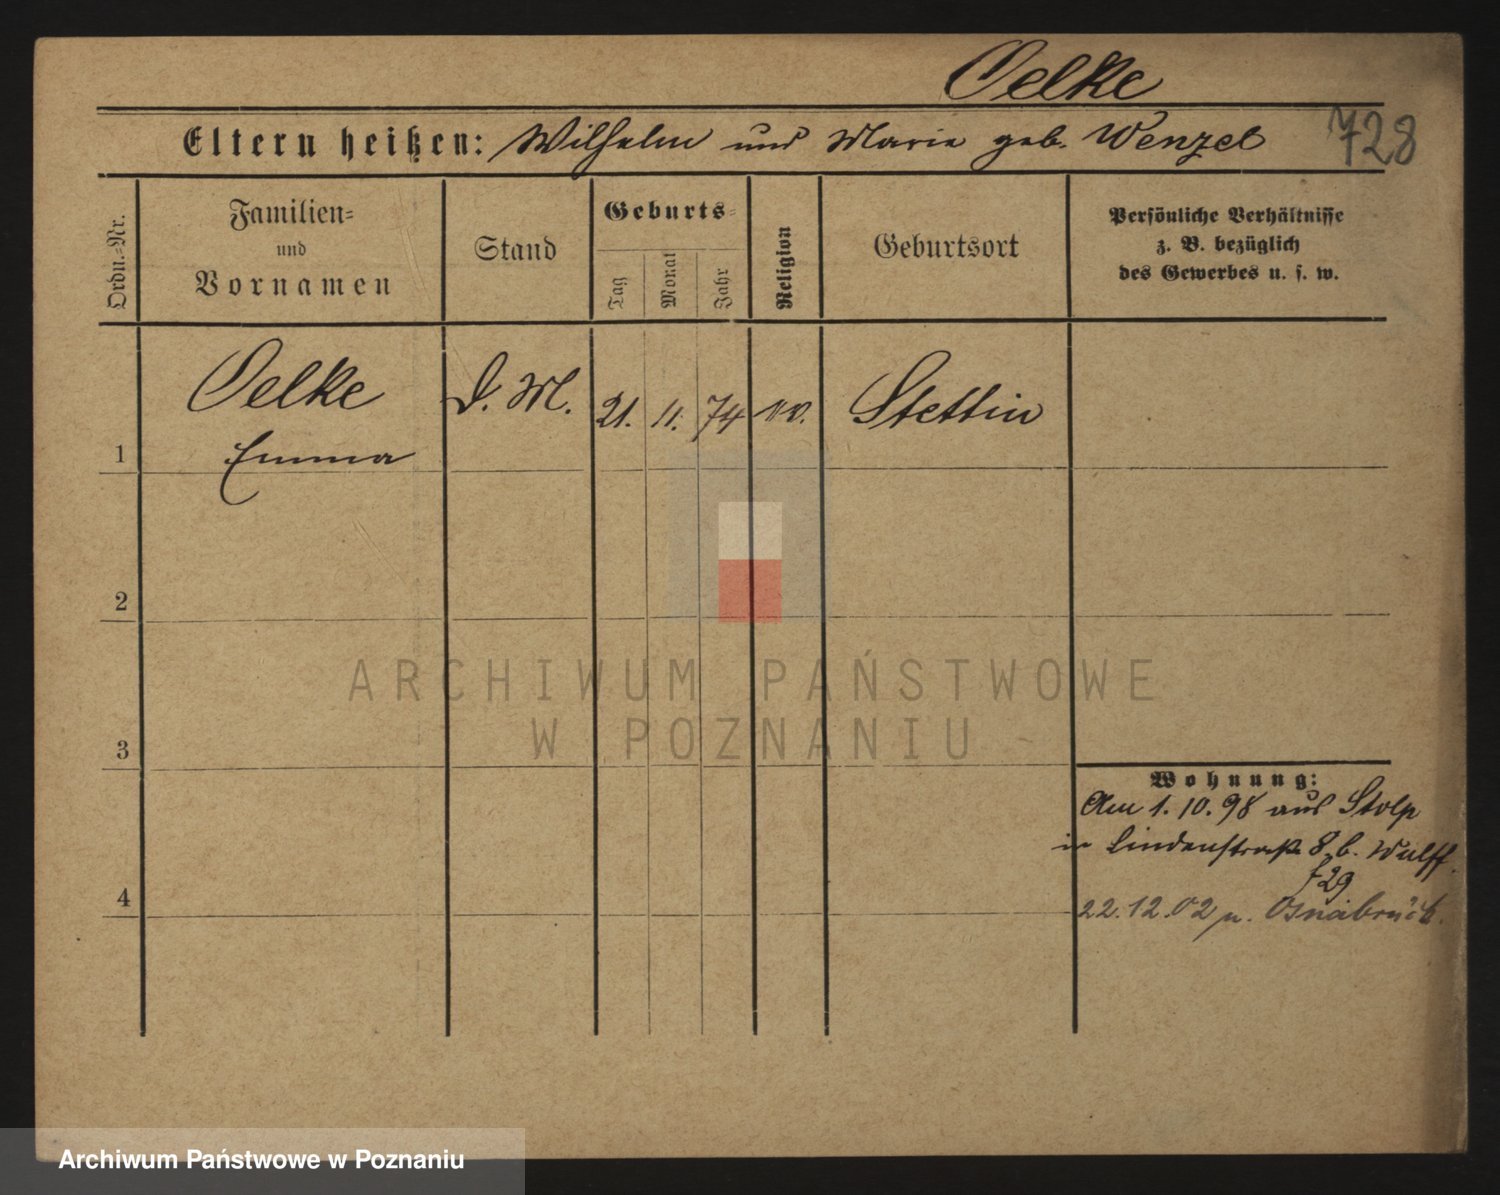 Oelke
Eltern heißen: Wilhelm und Marie geb. Wenzel 728
Ordn.-Nr.
Familien-
und
Vornamen
Stand
Geburts-
Tag
Monat
Jahr
Religion
Geburtsort
Persönliche Verhältnisse
z. B. bezüglich
des Gewerbes u. s. w.
Oelke
Emma
D. M.
21. 11. 74
Stettin
1
2
3
4
Wohnung:
Am 1. 10. 98 aus Stolp
in Lindenstraße 8, b. Wulff.
f29
22.12.02 n. Osnabrück.
ARCHIWUM PAŃSTWOWE
W POZNANIU
Archiwum Państwowe w Poznaniu